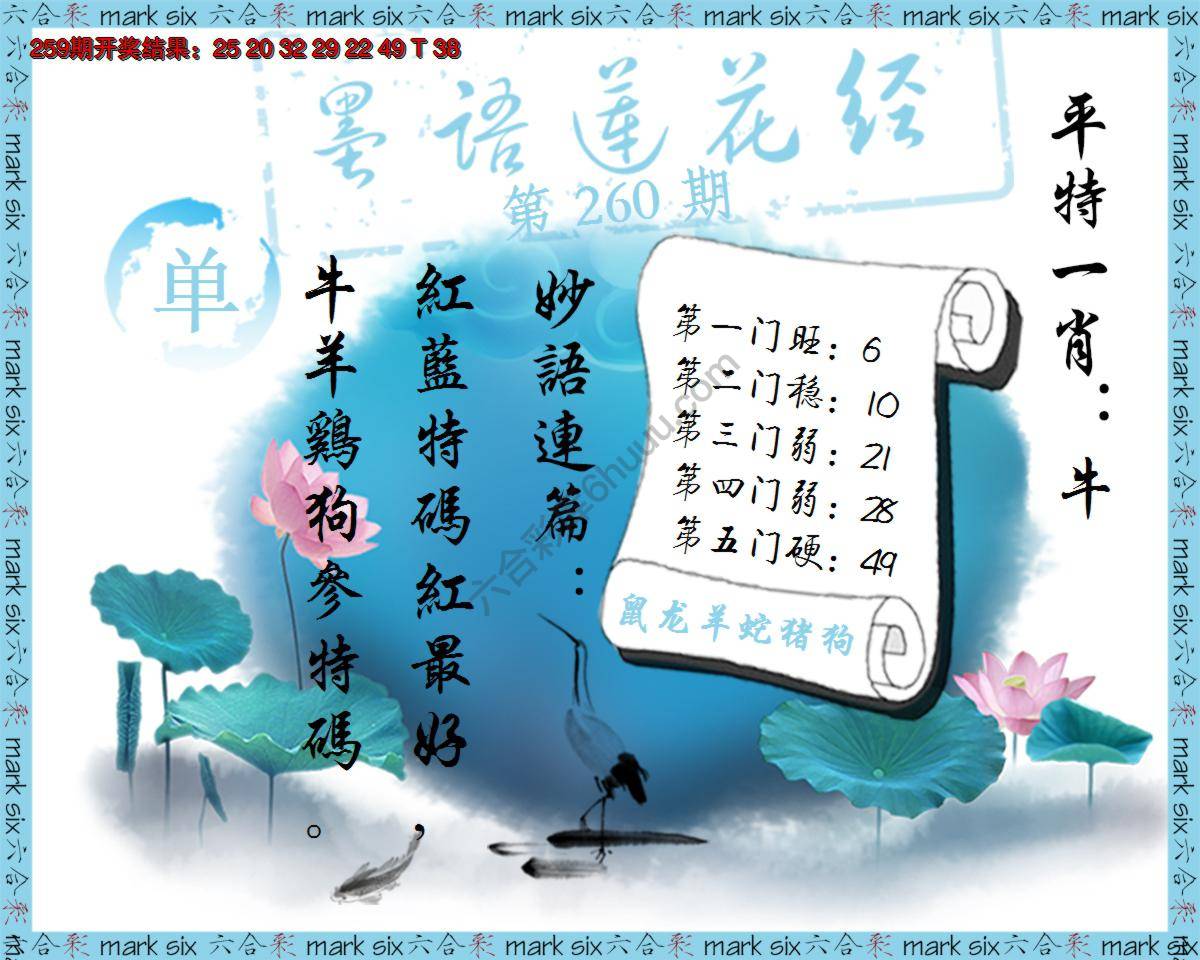 六合彩 mark six 六合彩 mark six 六合彩 mark six 六合彩 mark six 六合彩 mark six 六合彩 mark six
259期开奖结果：25 20 32 29 22 49 T 38
墨語莲花经
第 260 期
单
平特一肖：牛
妙語連篇：
紅藍特碼紅最好，
牛羊鷄狗參特碼。
第一门旺：6
第二门稳：10
第三门弱：21
第四门弱：28
第五门硬：49
鼠龙羊蛇猪狗
六合彩 mark six 六合彩 mark six 六合彩 mark six 六合彩 mark six 六合彩 mark six 六合彩 mark six